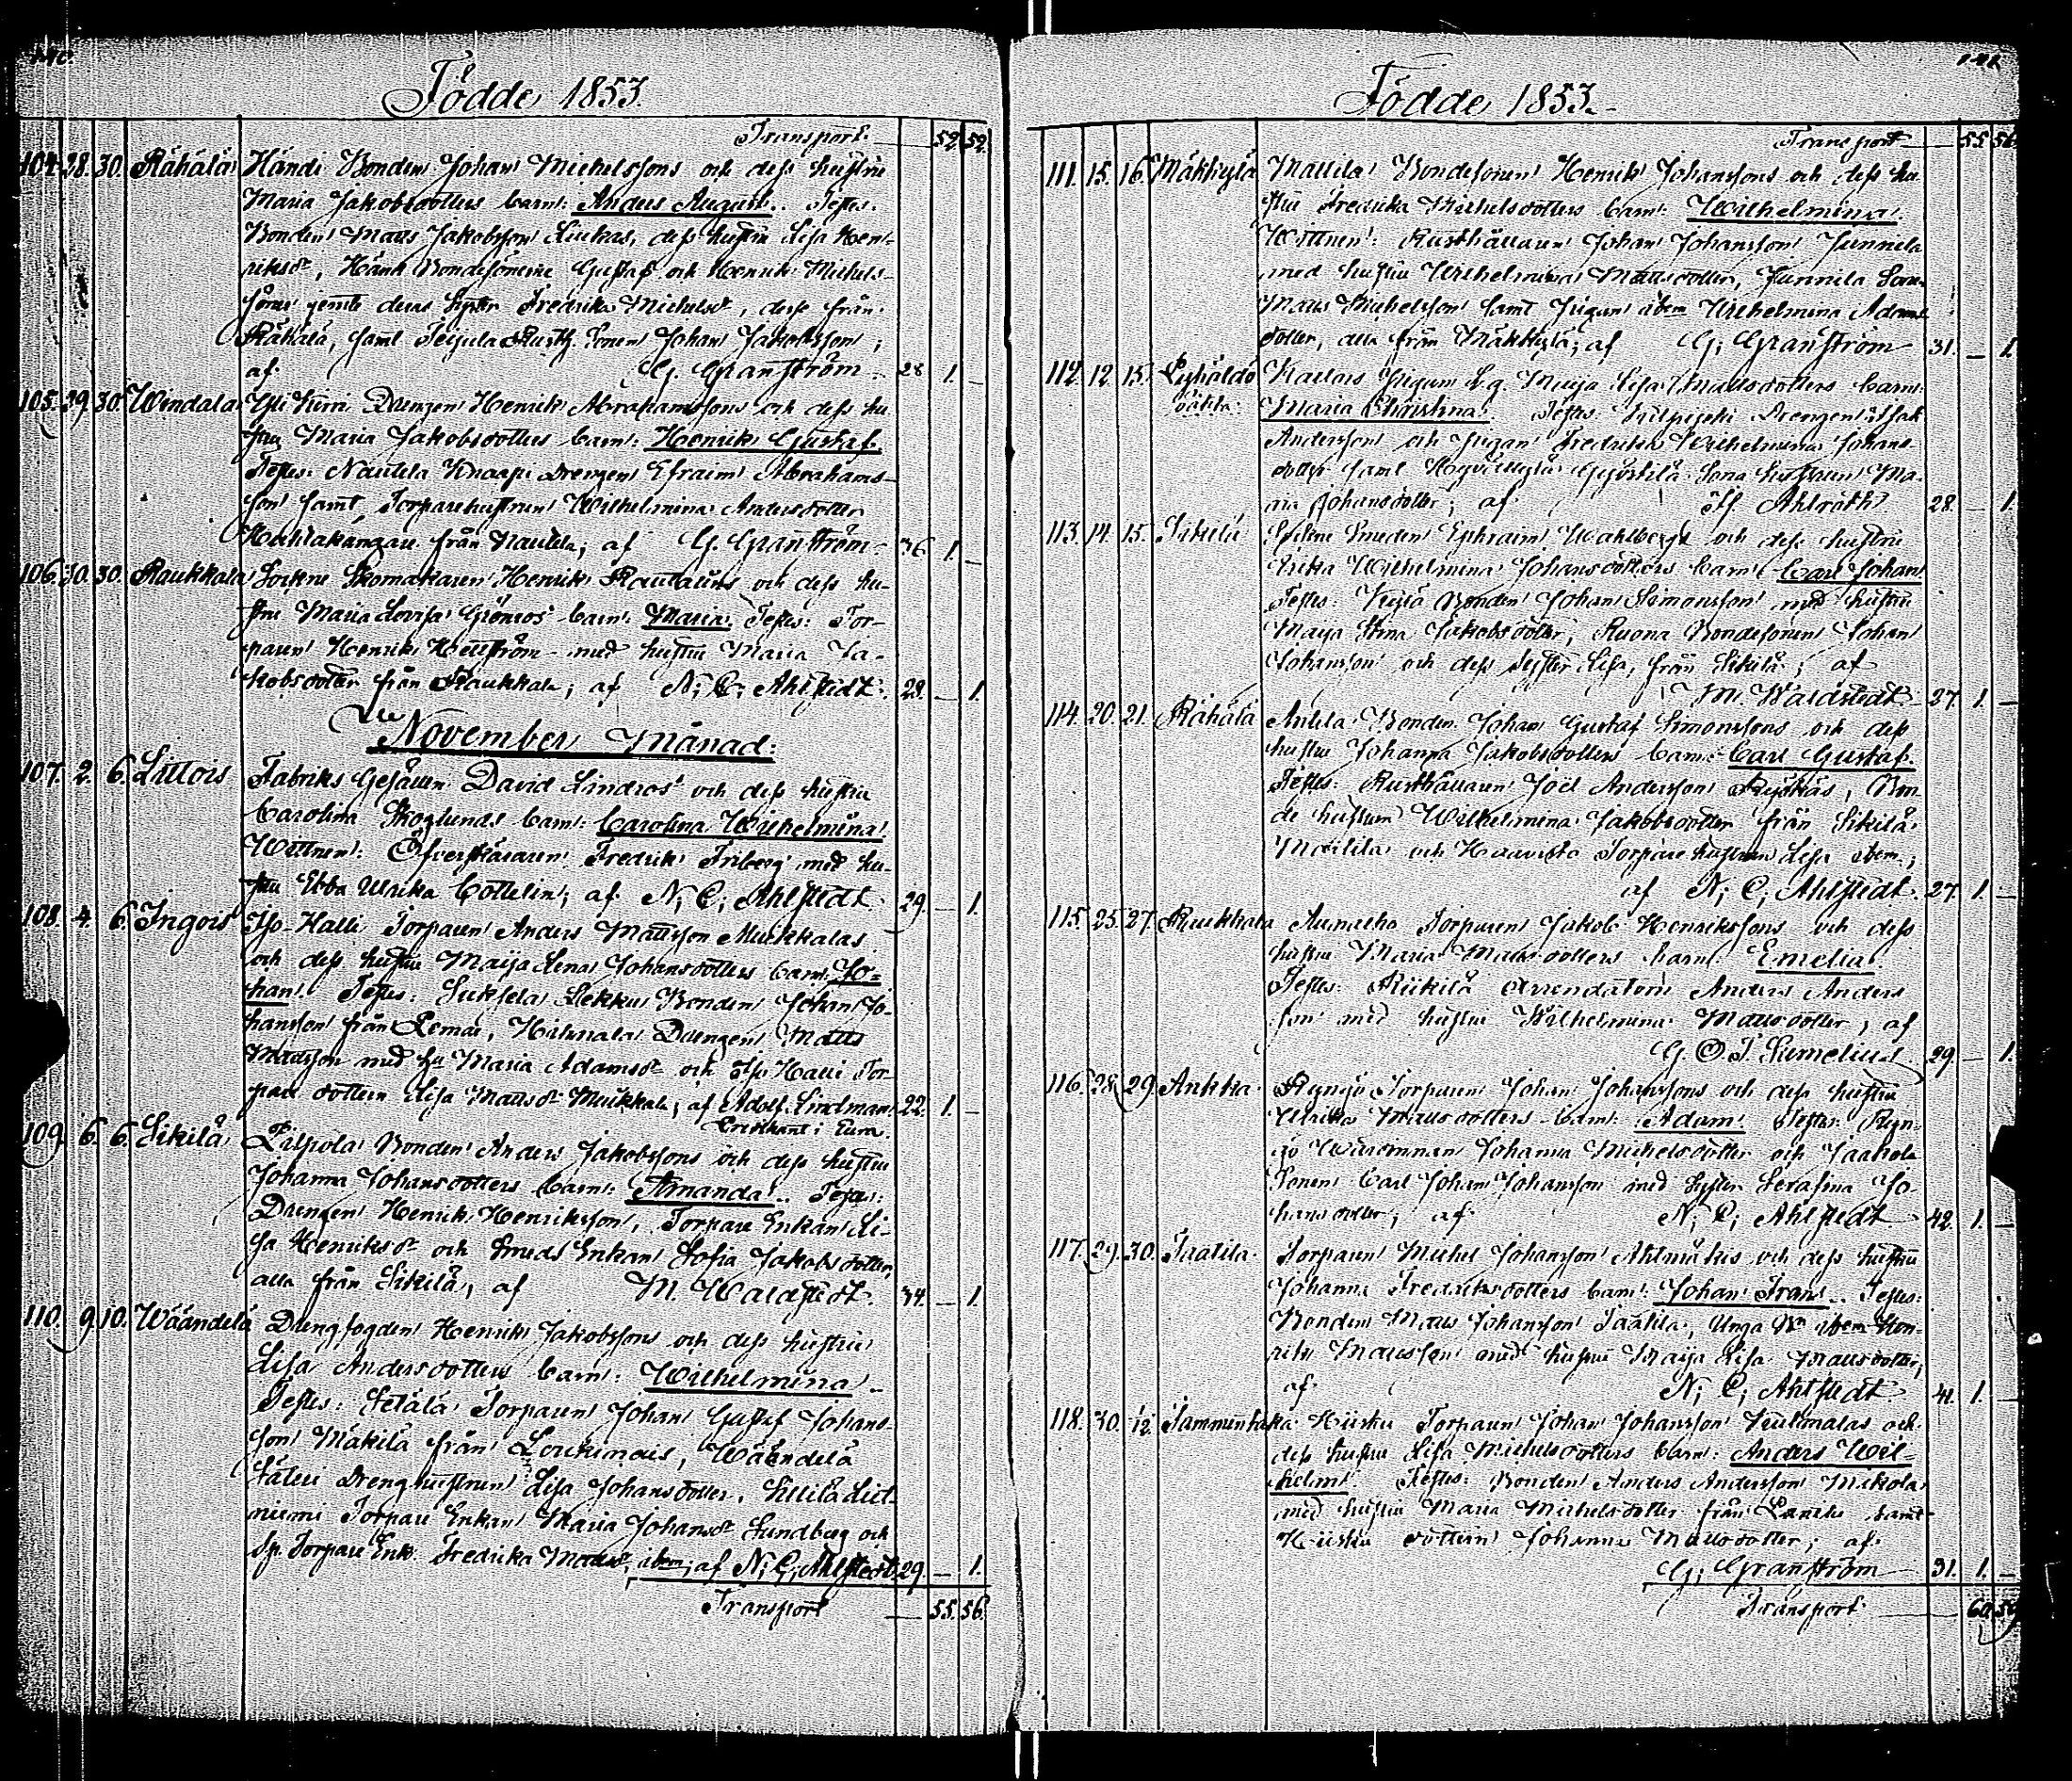 Födde 1853.
Transport. 52. 52.
104. 28. 30. Rähälä Händi Bonden Johan Michelssons och dess hustru
Maria Jakobsdotters barn: Anders August. Testes.
Bonden Matts Jakobsson Liukas, dess hustru Lisa Hen-
riksdr, Bondesönerne Gustaf och Henrik Michels-
söner jemte deras Syster Fredrika Michelsdr, desse från
Rähälä, samt Rusth. Sonen Johan Jakobsson;
af G. Granström. 28 1. –
105. 29. 30. Windala Drengen Henrik Abrahamssons och dess hu
stru Maria Jakobsdotters barn: Henrik Gustaf.
Testes: Nautela Knaapi Drengen Efraim Abrahams-
son samt Torparehustrun Wilhelmina Andersdotter
från Nautela; af G. Granström. 36 1. –
106. 30. 30. Raukkala Sockne Skomakaren Henrik och dess hu-
stru Maria Lovisa Grönros barn: Maria. Testes: Tor-
paren Henrik med hustru Maria Ja-
kobsdotter från Raukkala; af N. C. Ahlstedt. 29. – 1.
November Månad.
107. 2. 6. Littois Fabriks Gesällen David Lindros och dess hustru
Carolina Skoglunds barn: Carolina Wilhelmina.
Wittnen: Öfverskäraren Fredrik Friberg med hu-
stru Ebba Ulrika Cottelin; af N. C. Ahlstedt 29. – 1.
108. 4. 6. Ingois Iso-Halli Torparen Anders Mattsson Mukkalas
och dess hustru Maija Lena Johansdotters barn: Jo-
han. Testes: Suksela Bonden Johan Jo-
hansson från Lemu, Drengen Matts
Mattsson med hu Maria Adamsdr och Iso Halli Tor-
pare dottern Lisa Mattsdr Mukkala; af Adolf Lindman 22. 1. –
Predikant i Eura.
109. 6. 6. Sikilä Pilpola Bonden Anders Jakobssons och dess hustru
Johanna Johansdotters barn: Amanda. Testes:
Drengen Henrik Henriksson, Torpare Enkan Li-
sa Henriksdr och Smeds Enkan Sofia Jakobsdotter,
alla från Sikilä; af M. Waldstedt. 34. – 1.
110. 9. 10. Wäändelä Drengfogden Henrik Jakobssons och dess hustru
Lisa Andersdotters barn: Wilhelmina.
Testes: Torparen Johan Gustaf Johans-
son Mäkilä från Loukinais, Wäändelä
Drenghustrun Lisa Johansdotter,
niemi Torpare Enkan Maria Johansdr Sundberg och
Torpare Enk. Fredrika Mattsdr, ibm; af N. C. Ahlstedt 29. – 1.
Transport 55. 56.
Födde 1853.
Transport 55. 56.
111. 15. 16. Mäkkylä Mattila Bondesonen Henrik Johanssons och dess hu-
stru Fredrika Michelsdotters barn: Wilhelmina.
Wittnen: Rusthållaren Johan Johansson Junnila
med hustru Wilhelmina Mattsdotter, Junnila Sonen
Matts Michelsson samt Pigan ibm Wilhelmina Adams-
dotter, alla från Mäkkylä; af G. Granström 31. – 1.
112. 12. 15. Pigan L. g. Maija Lisa Mattsdotters barn:
Maria Christina. Testes: Drengen Isak
Andersson och Pigan Fredrika Wilhelmina Johans-
dotter samt Sona hustrun Ma-
ria Johansdotter; af Ahlroth 28. – 1.
113. 14. 15. Sikilä Sockne Smeden Ephraim Wahlbergs och dess hustru
Erika Wilhelmina Johansdotters barn: Carl Johan.
Testes: Bonden Johan Simonsson med hustru
Maja Stina Jakobsdotter, Ruona Bondesonen Johan
Johansson och dess Syster Lisa, från Sikilä; af
M. Waldstedt. 27. 1. –
114. 20. 21. Rähälä Anlila Bonden Johan Gustaf Simonssons och dess
hustru Johanna Jakobsdotters barn: Carl Gustaf.
Testes: Rusthållaren Joël Andersson, Bon-
de hustrun Wilhelmina Jakobsdotter från Sikilä
Mattila och Haavisto Torpare hustrun Lisa ibm;
af N. C. Ahlstedt. 27. 1. –
115. 25. 27. Raukkala Torparen Jakob Henrikssons och dess
hustru Maria Mattsdotters barn: Emelia.
Testes: Riikilä Arrendatorn Anders Anders-
son med hustru Wilhelmina Mattsdotter; af
G. O. T. Sumelius. 29. – 1.
116. 28. 29. Ankka Rungo Torparen Johan Johanssons och dess hustru
Ulrika Mattsdotters barn: Adam. Testes:
Johanna Michelsdotter och Jaakola
Sonen Carl Johan Johansson med Syster Serafina Jo-
hansdotter; af N. C. Ahlstedt 42. 1. –
117. 29. 30. Taatila Torparen Michel Johansson och dess hustru
Johanna Fredriksdotters barn: Johan Frans. Testes:
Bonden Matts Johansson Taatila, Unga Bn ibm Hen-
rik Mattsson med hustru Maija Lisa Mattsdotter,
af N. C. Ahlstedt. 41. 1. –
118. 30. 1/12. Tammentaka Hiiska Torparen Johan Johansson och
dess hustru Lisa Michelsdotters barn: Anders Wil-
helm. Testes: Bonden Anders Andersson Mikola
med hustru Maria Michelsdotter från samt
Hiiska dottern Johanna Mattsdotter; af
G. Granström 31. 1. –
Transport. 60. 59.